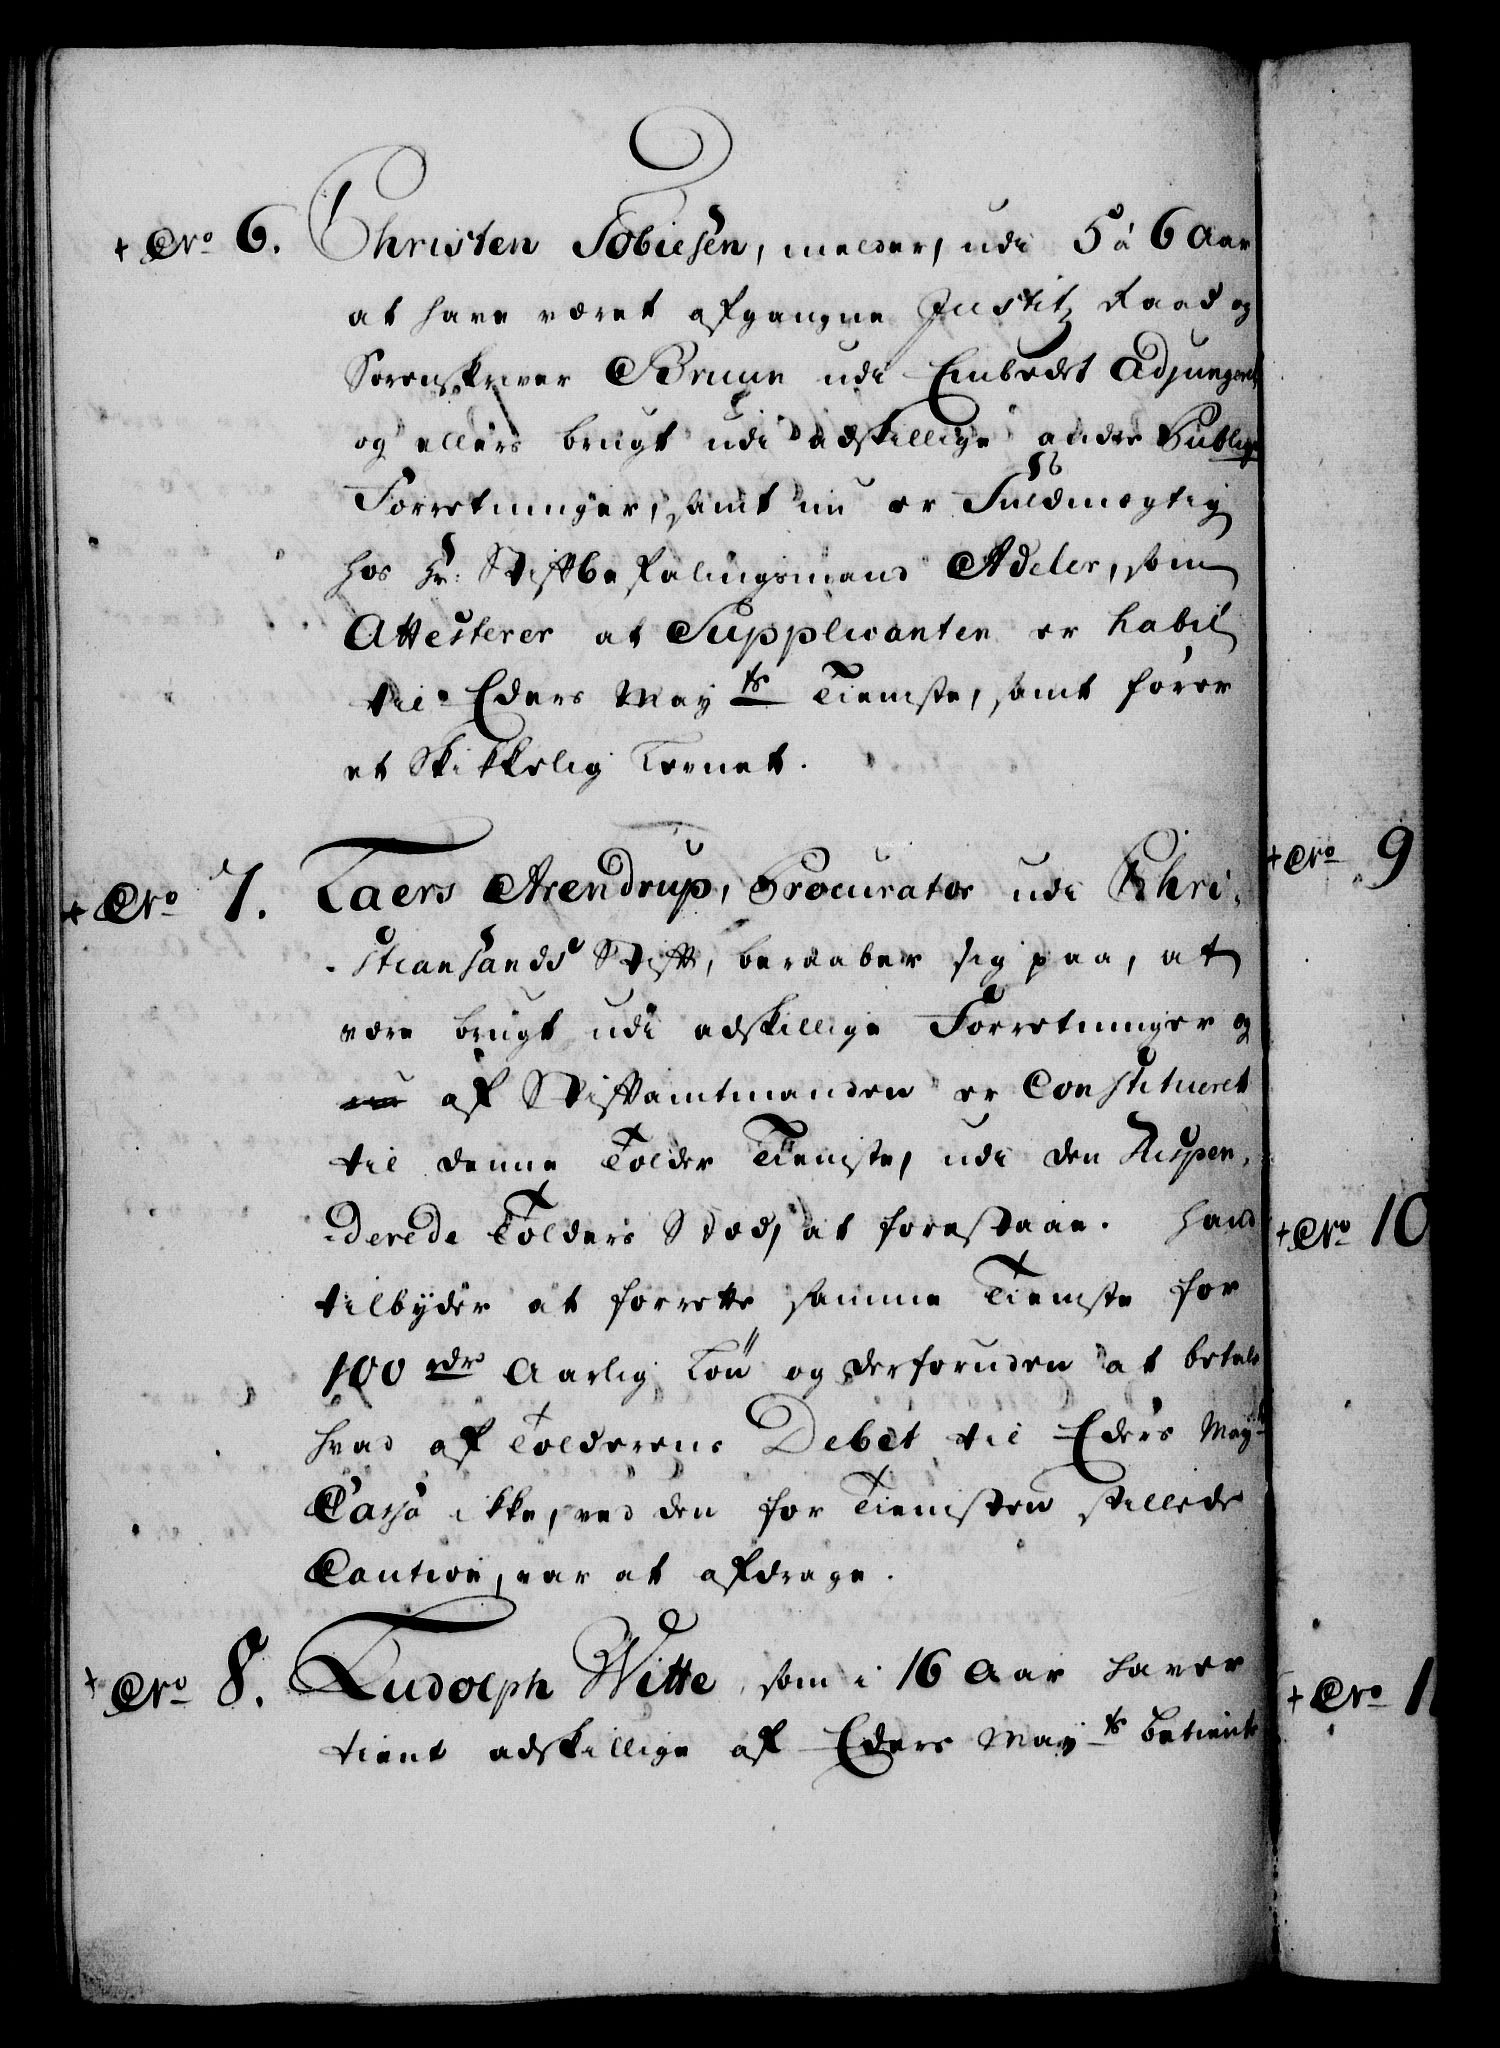 + No 6. Christen Tobiesen, melder, udi 5 à 6 Aar
at have været afgangne Justitz Raad og
Sorenskriver Bruun udi Embedet Adjungeret
og ellers brugt udi adskillige andre Publiqve
Forretninger, samt nu er Fuldmægtig
hos Hr: Stiftbefalingsmand Adeler, som
Attesterer at Supplicanten er habil
til Eders Mayts Tieniste, samt fører
et skikkelig Levnet.
+ No 7. Laers Arendrup, Procurator udi Chri-
stiansands Stift, beraaber sig paa, at
være brugt udi adskillige Forretninger og
nu af Stiftamtmanden er Constitueret
til denne Tolder Tieniste, udi den Suspen-
derede Tolders Sted, at forestaae. Hand
tilbyder at forrette samme Tieniste for
100 rdr Aarlig Løn og derforuden at betale
hvad af Tolderens Debet til Eders Mayts
Cassa ikke, ved den for Tienisten stillede
Caution, var at afdrage.
+ No 8. Ludolph Witte, som i 16 Aar haver
tient adskillige af Eders Mayts betiente
+ No 9
+ No 10
+ No 11